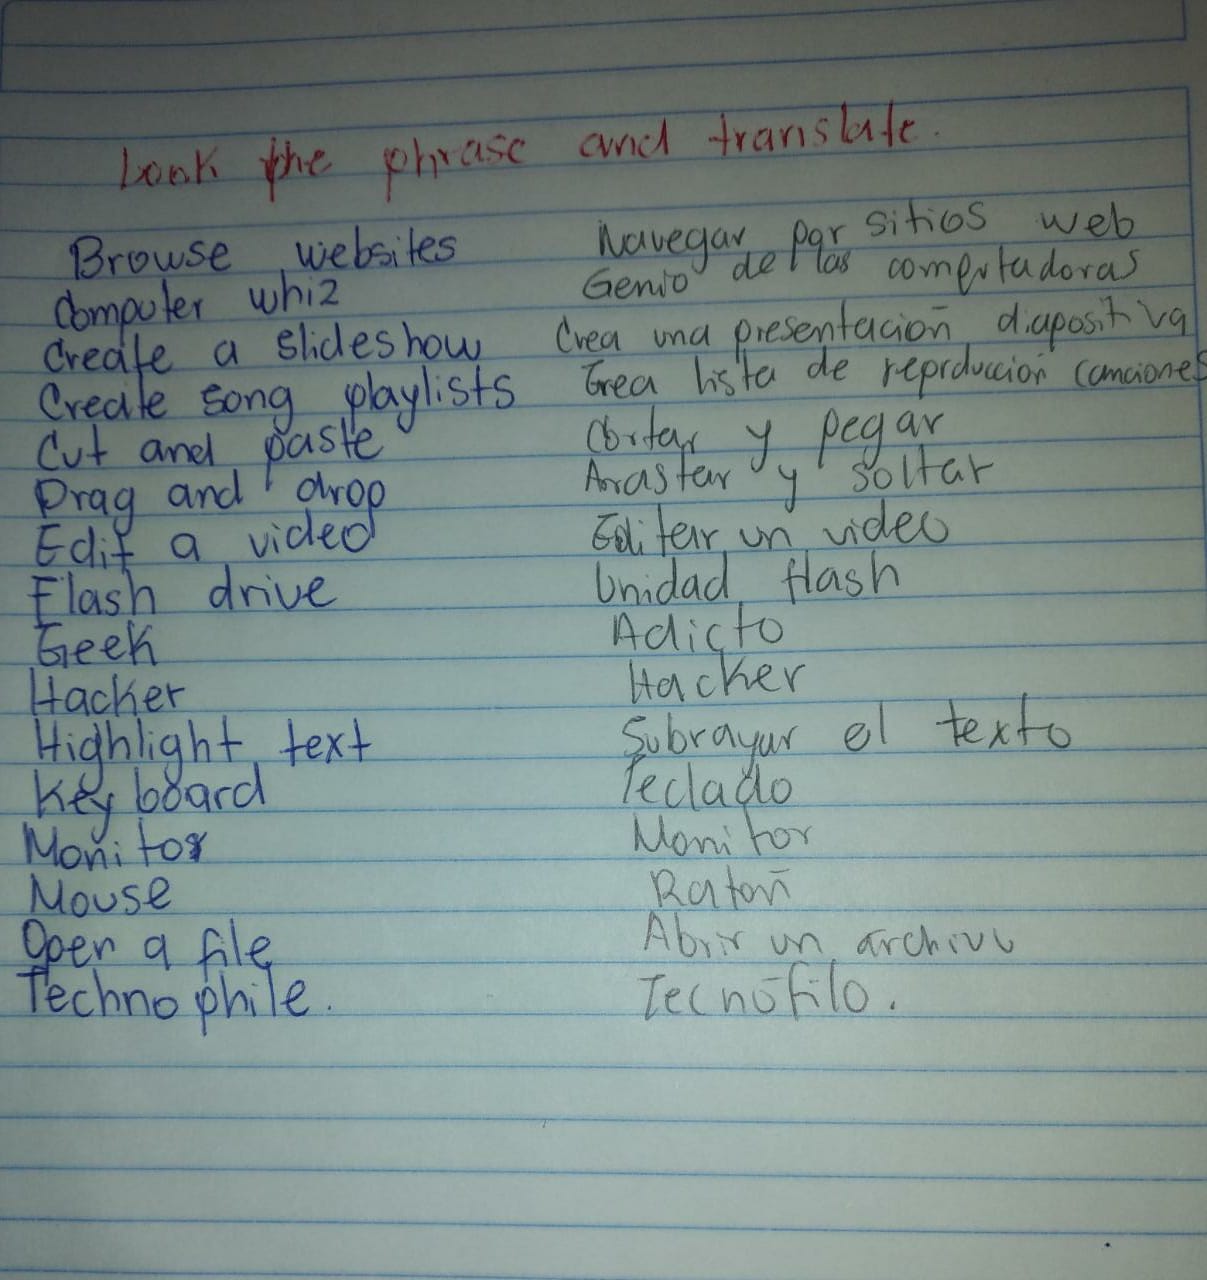 Look the phrase and translate.
Browse websites Navegar por sitios web
Computer whiz Genio de las computadoras
Create a slideshow Crea una presentación diapositiva
Create song playlists Crea lista de reproducción canciones
Cut and paste Cortar y pegar
Drag and drop Arastar y soltar
Edit a video Editar un video
Flash drive Unidad flash
Geek Adicto
Hacker Hacker
Highlight text Subrayar el texto
Keyboard Teclado
Monitor Monitor
Mouse Ratón
Open a file Abrir un archivo
Technophile. Tecnófilo.